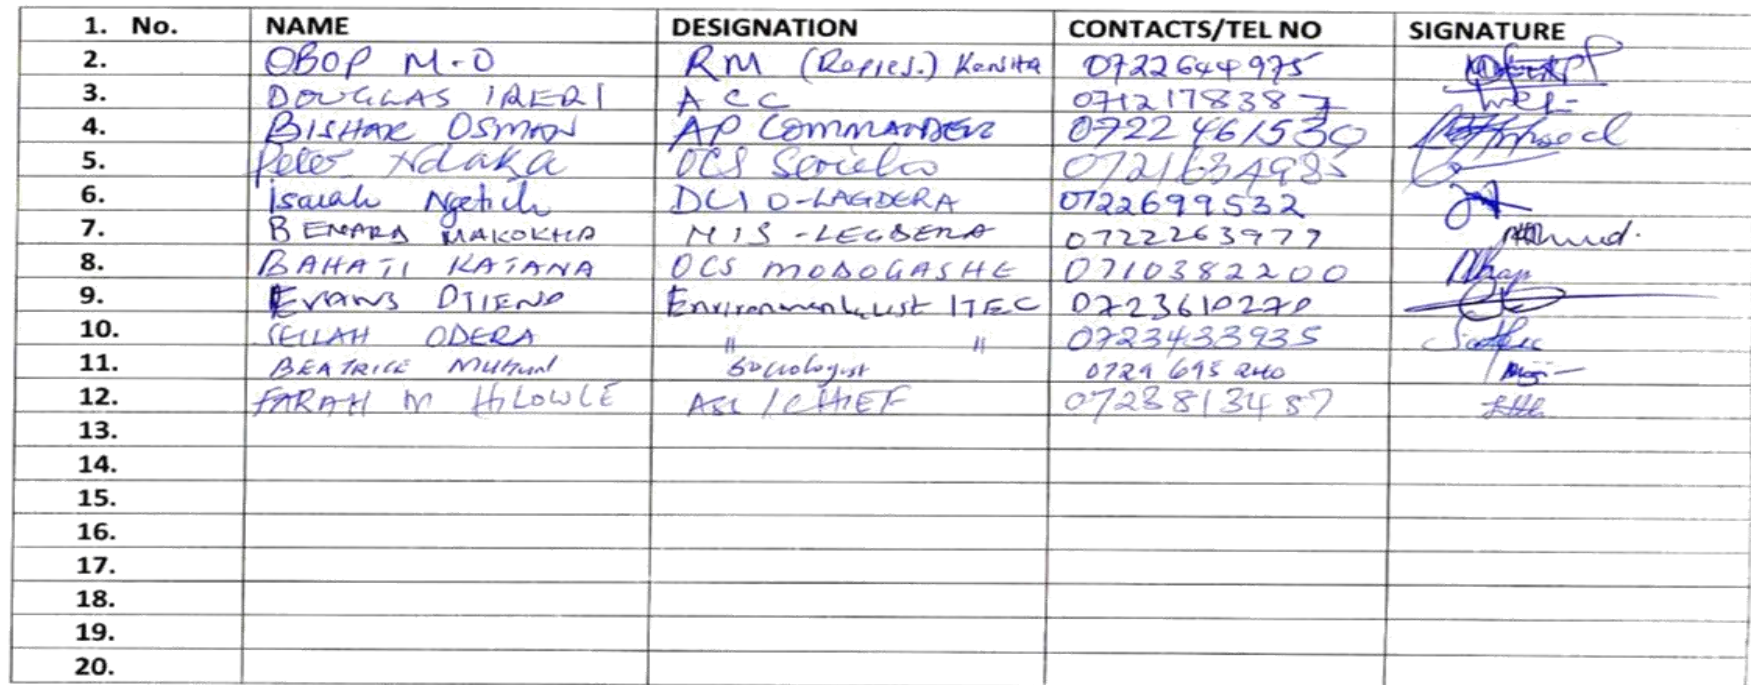 1. No. NAME DESIGNATION CONTACTS/TEL NO SIGNATURE
2. OBOP M.O RM (Repres.) KeNHA 0722644975
3. DOUGLAS IRERI ACC 0712178387
4. BISHAR OSMAN AP COMMANDER 0722461530
5. Peter Ndaka OCS 0721634985
6. Isaiah Ngetich DCIO-LAGDERA 0722699532
7. MAKOKHA NIS - 0722263977
8. BAHATI KATANA OCS MODOGASHE 0710382200
9. EVANS OTIENO Environmentalist ITEC 0723610270
10. ODERA " " 0723433935
11. BEATRICE Sociologist 0729 695 240
12. FARAH M HILOWLE / CHIEF 0723813487
13.
14.
15.
16.
17.
18.
19.
20.